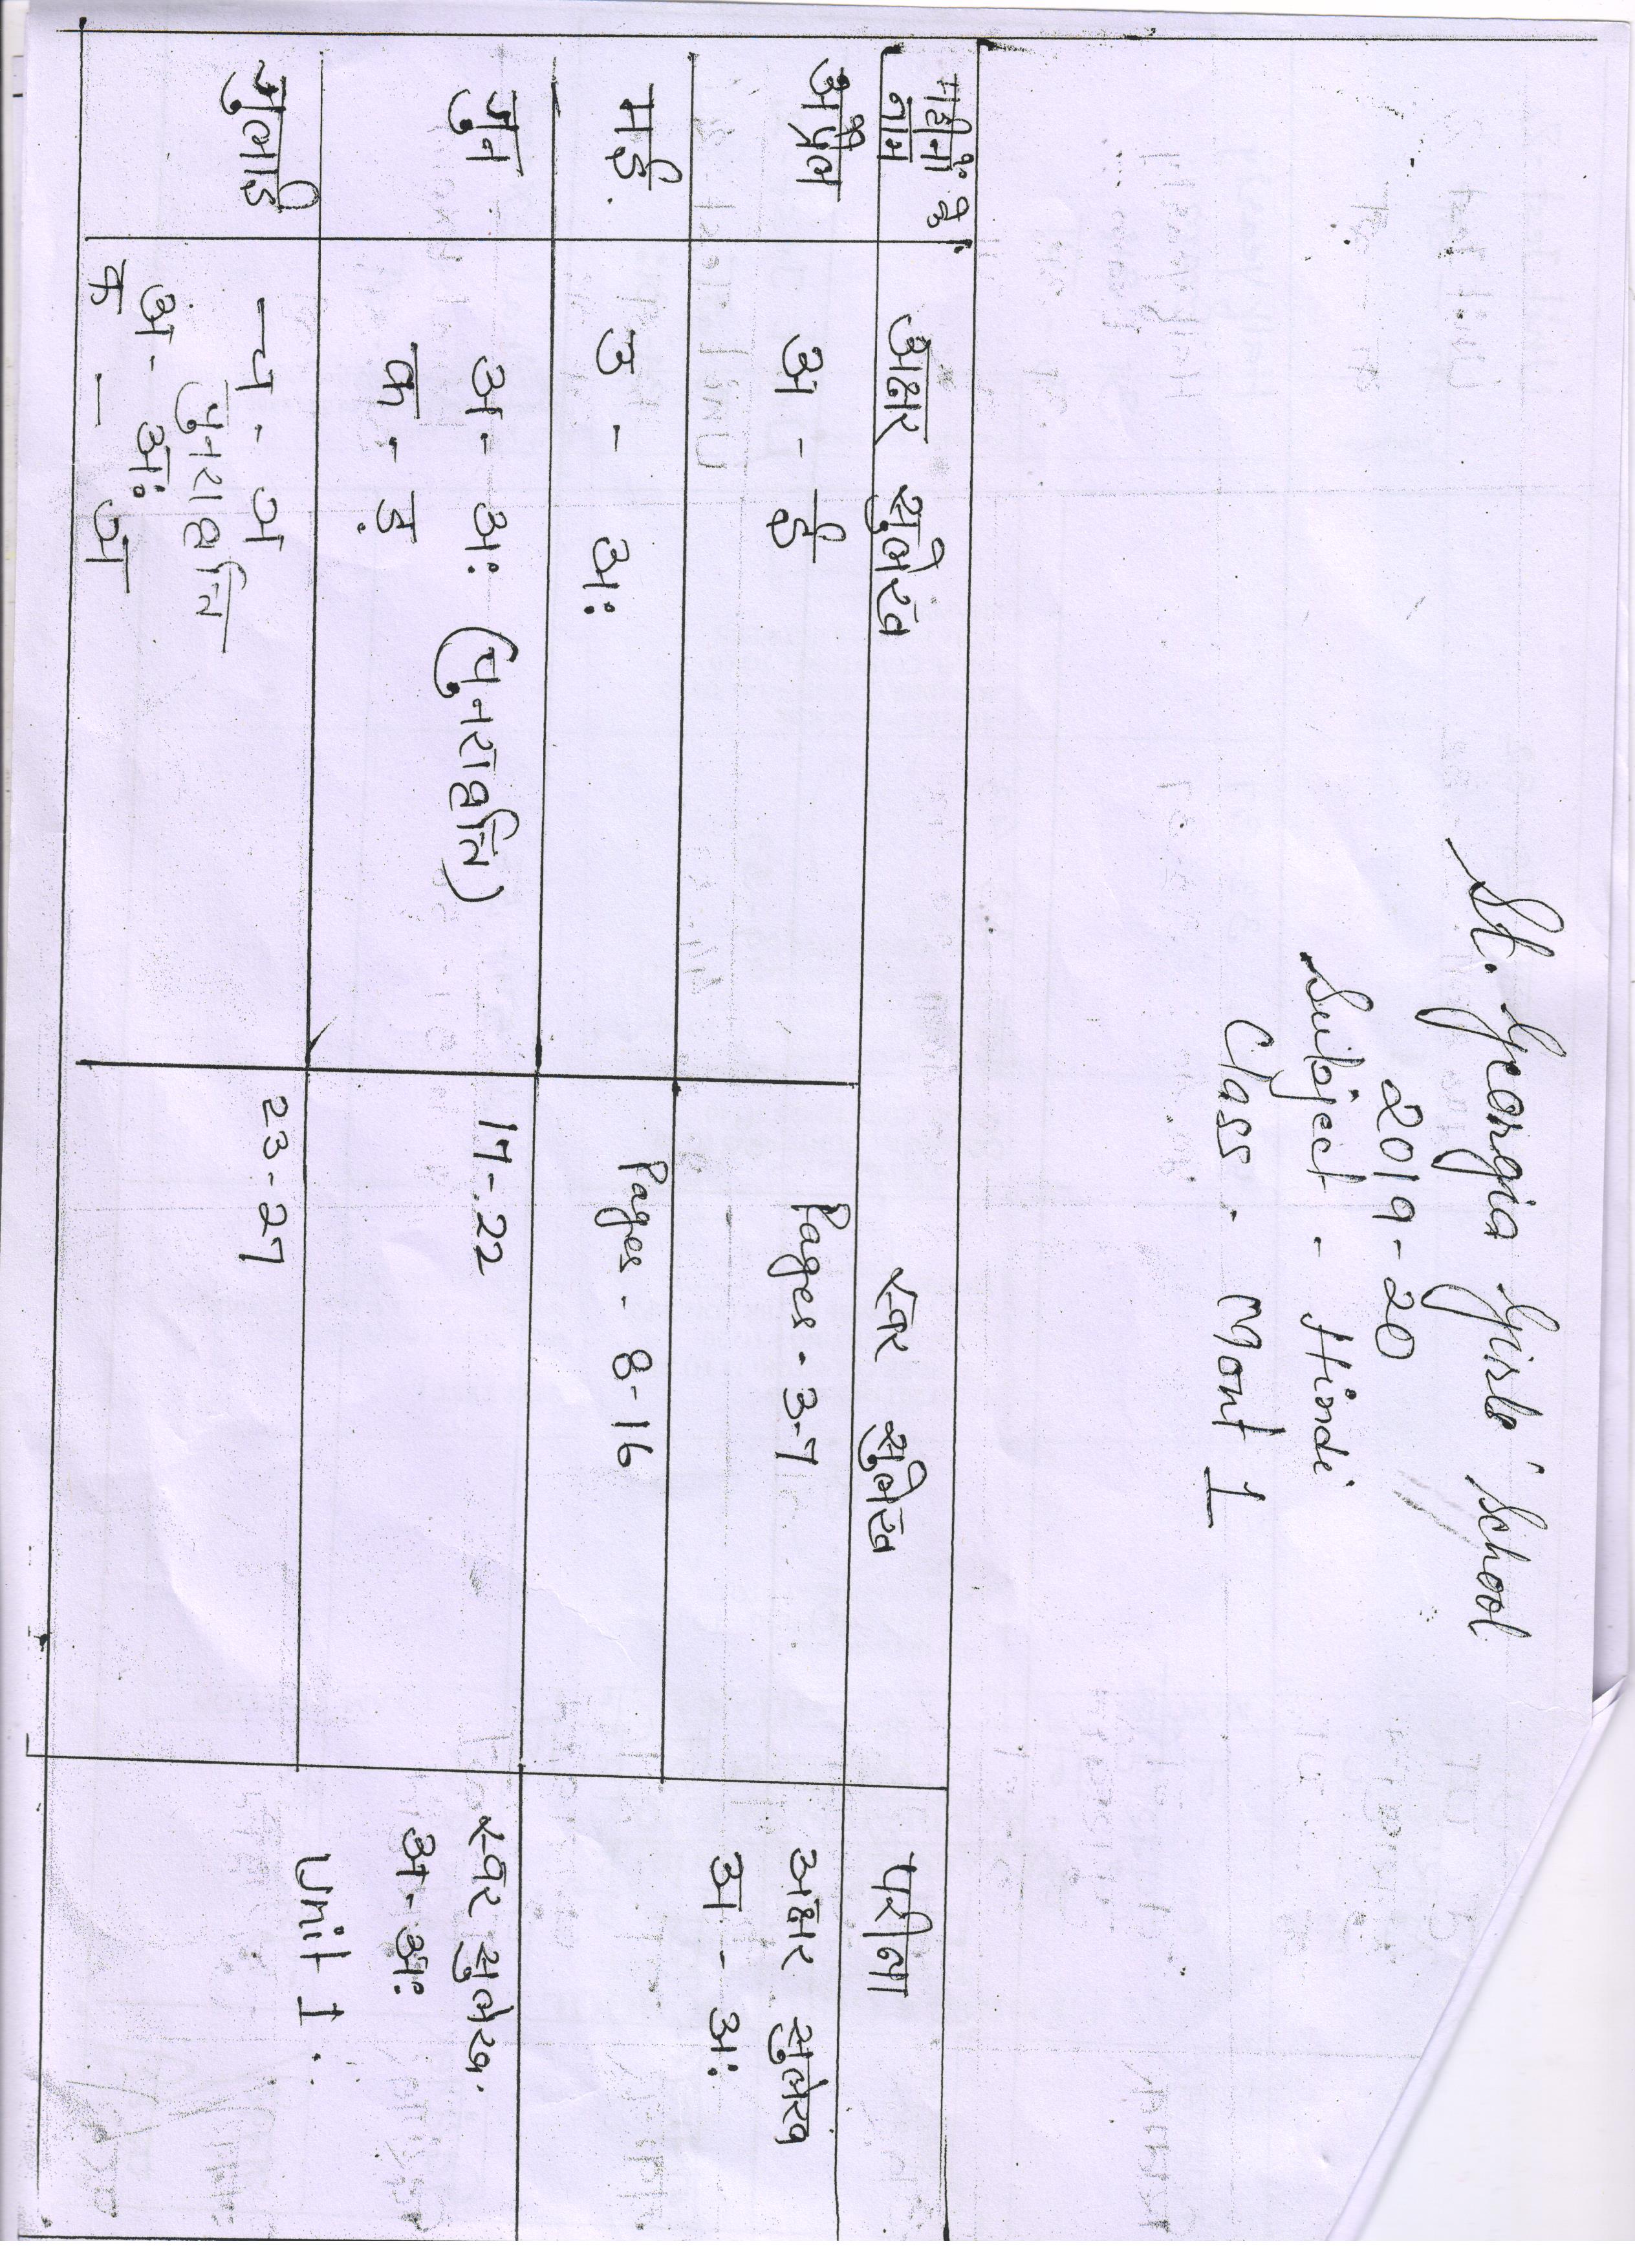 St. Georgia Girls' School
2019-20
Subject - Hindi
Class - Mont I
महीनों के नाम
अक्षर सुलेख
स्वर सुलेख
परीक्षा
अप्रैल
अ - ई
Pages - 3-7
अक्षर सुलेख
अ - अः
मई
उ - अः
Pages - 8-16
जुन
अ - अः (पुनरावृत्ति)
क - ङ
17-22
स्वर सुलेख
अ - अः
Unit I
जुलाई
च - ञ
पुनरावृत्ति
अ - अः
क - ञ
23-27